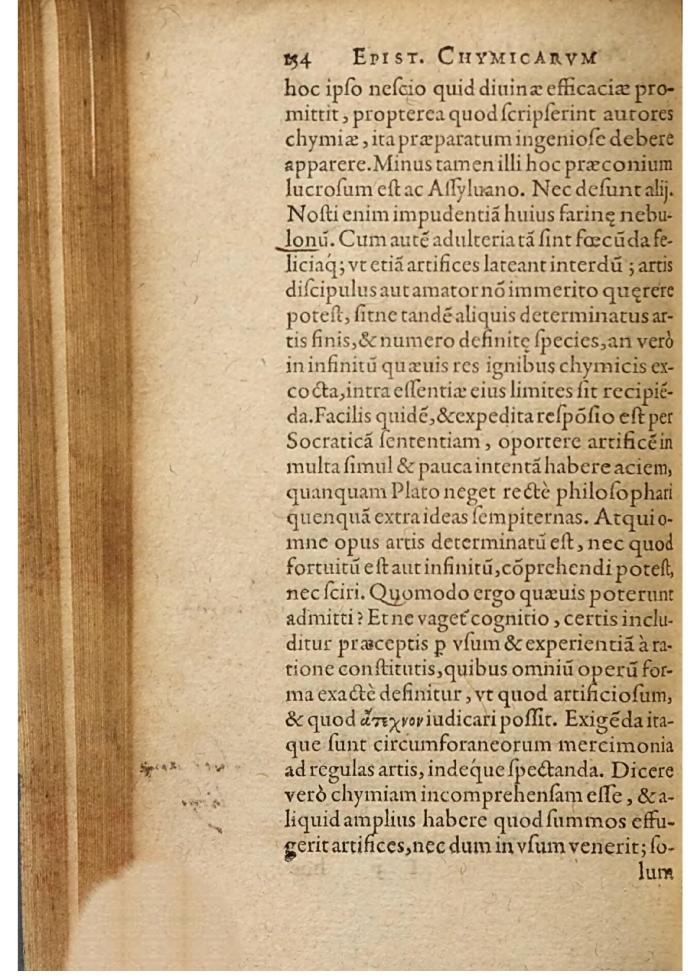 154 EPIST. CHYMICARVM
hoc ipſo neſcio quid diuinæ efficaciæ pro-
mittit, propterea quod ſcripſerint autores
chymiæ, ita præparatum ingenioſe debere
apparere. Minus tamen illi hoc præconium
lucroſum eſt ac Aſſyluano. Nec deſunt alij.
Noſti enim impudentiã huius farinę nebu-
lonũ. Cum autẽ adulteria tã ſint fœcũda fe-
liciaq́; vt etiã artifices lateant interdũ; artis
diſcipulus aut amator nõ immerito quęrere
poteſt, ſitne tandẽ aliquis determinatus ar-
tis finis, & numero definitę ſpecies, an verò
in infinitũ quæuis res ignibus chymicis ex-
cocta, intra eſſentiæ eius limites ſit recipiẽ-
da. Facilis quidẽ, & expedita reſpõſio eſt per
Socraticã ſententiam, oportere artificẽ in
multa ſimul & pauca intentã habere aciem,
quanquam Plato neget rectè philoſophari
quenquã extra ideas ſempiternas. Atqui o-
mne opus artis determinatũ eſt, nec quod
fortuitũ eſt aut infinitũ, cõprehendi poteſt,
nec ſciri. Quomodo ergo quæuis poterunt
admitti? Et ne vaget᷑ cognitio, certis inclu-
ditur præceptis ꝑ vſum & experientiã à ra-
tione conſtitutis, quibus omniũ operũ for-
ma exactè definitur, vt quod artificioſum,
& quod ἄτεχνον iudicari poſſit. Exigẽda ita-
que ſunt circumforaneorum mercimonia
ad regulas artis, indeque ſpectanda. Dicere
verò chymiam incomprehenſam eſſe, & a-
liquid amplius habere quod ſummos effu-
gerit artifices, nec dum in vſum venerit; ſo-
lum